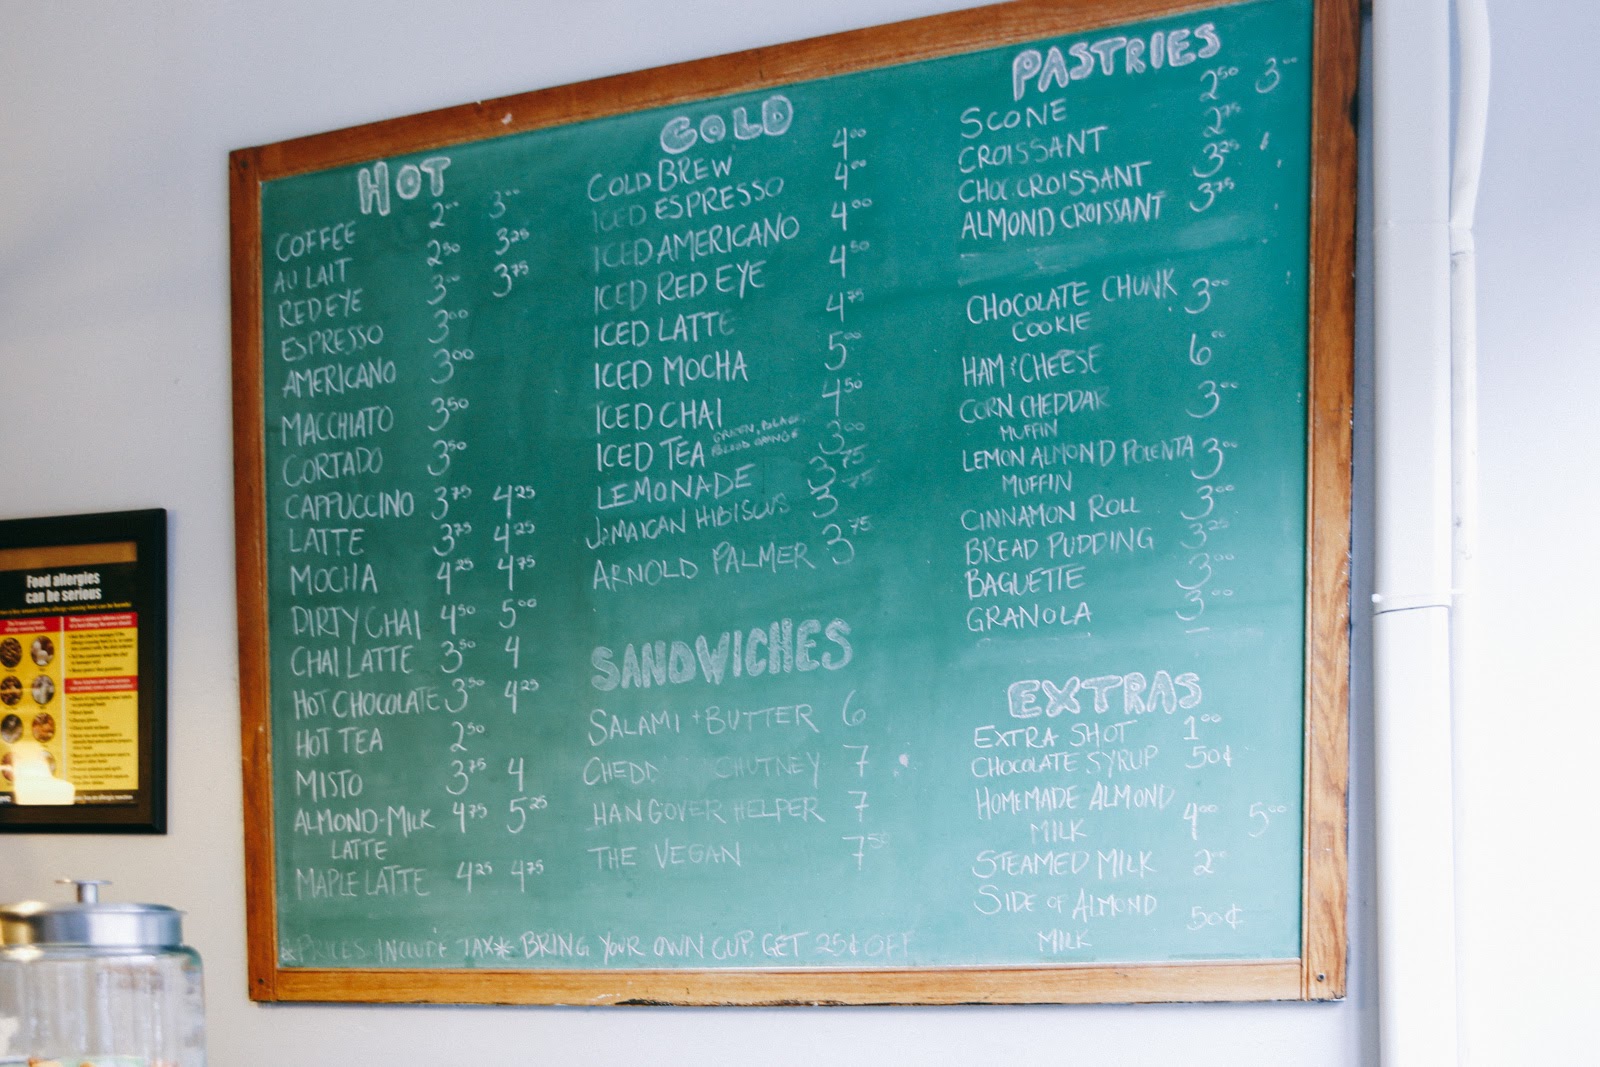 HOT
COFFEE 2.00 3.00
AU LAIT 2.50 3.25
RED EYE 3.00 3.75
ESPRESSO 3.00
AMERICANO 3.00
MACCHIATO 3.50
CORTADO 3.50
CAPPUCCINO 3.75 4.25
LATTE 3.75 4.25
MOCHA 4.25 4.75
DIRTY CHAI 4.50 5.00
CHAI LATTE 3.50 4
HOT CHOCOLATE 3.50 4.25
HOT TEA 2.50
MISTO 3.75 4
ALMOND-MILK 4.75 5.25
LATTE
MAPLE LATTE 4.25 4.75
COLD
COLD BREW 4.00
ICED ESPRESSO 4.00
ICED AMERICANO 4.00
ICED RED EYE 4.50
ICED LATTE 4.75
ICED MOCHA 5.00
ICED CHAI 4.50
ICED TEA GREEN, BLACK, BLOOD ORANGE 3.00
LEMONADE 3.75
JAMAICAN HIBISCUS 3.75
ARNOLD PALMER 3.75
SANDWICHES
SALAMI + BUTTER 6
CHEDD CHUTNEY 7
HANGOVER HELPER 7
THE VEGAN 7.50
PASTRIES
SCONE 2.50 3.00
CROISSANT 2.75
CHOC. CROISSANT 3.25
ALMOND CROISSANT 3.75
CHOCOLATE CHUNK 3.00
COOKIE
HAM & CHEESE 6.00
CORN CHEDDAR 3.00
MUFFIN
LEMON ALMOND POLENTA 3.00
MUFFIN
CINNAMON ROLL 3.00
BREAD PUDDING 3.25
BAGUETTE 3.00
GRANOLA 3.00
EXTRAS
EXTRA SHOT 1.00
CHOCOLATE SYRUP 50¢
HOMEMADE ALMOND
MILK 4.00 5.00
STEAMED MILK 2.00
SIDE OF ALMOND
MILK 50¢
* PRICES INCLUDE TAX * BRING YOUR OWN CUP, GET 25¢ OFF
Food allergies
can be serious